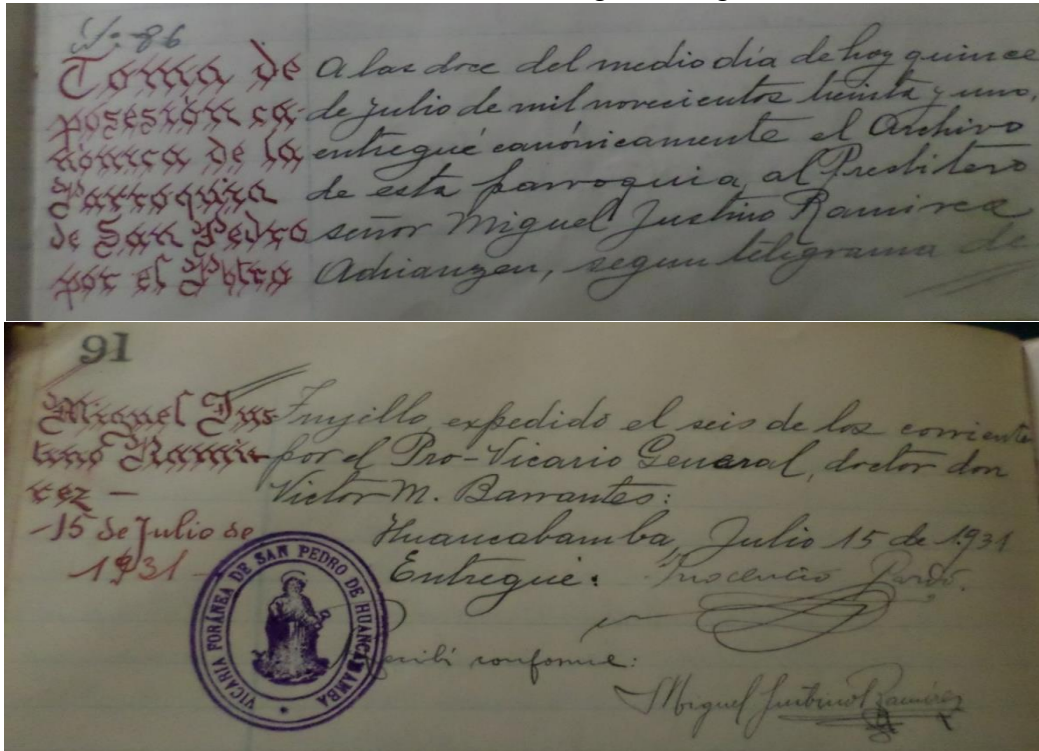 Nº 86
Toma de
posesión ca-
nónica de la
Parroquia
de San Pedro
por el Pbtro
A las doce del medio día de hoy quince
de julio de mil novecientos treinta y uno,
entregué canónicamente el Archivo
de esta parroquia, al Presbitero
señor Miguel Justino Ramirez
Adrianzen, segun telegrama de
91
Miguel Jus
tino Rami-
rez -
-15 de Julio de
1931-
Trujillo, expedido el seis de los corrientes
por el Pro-Vicario General, doctor don
Victor M. Barrantes:
Huancabamba, Julio 15 de 1931
Entregué: Inocencio Pardo.
VICARIA FORÁNEA DE SAN PEDRO DE HUANCABAMBA
Recibí conforme:
Miguel Justino Ramírez